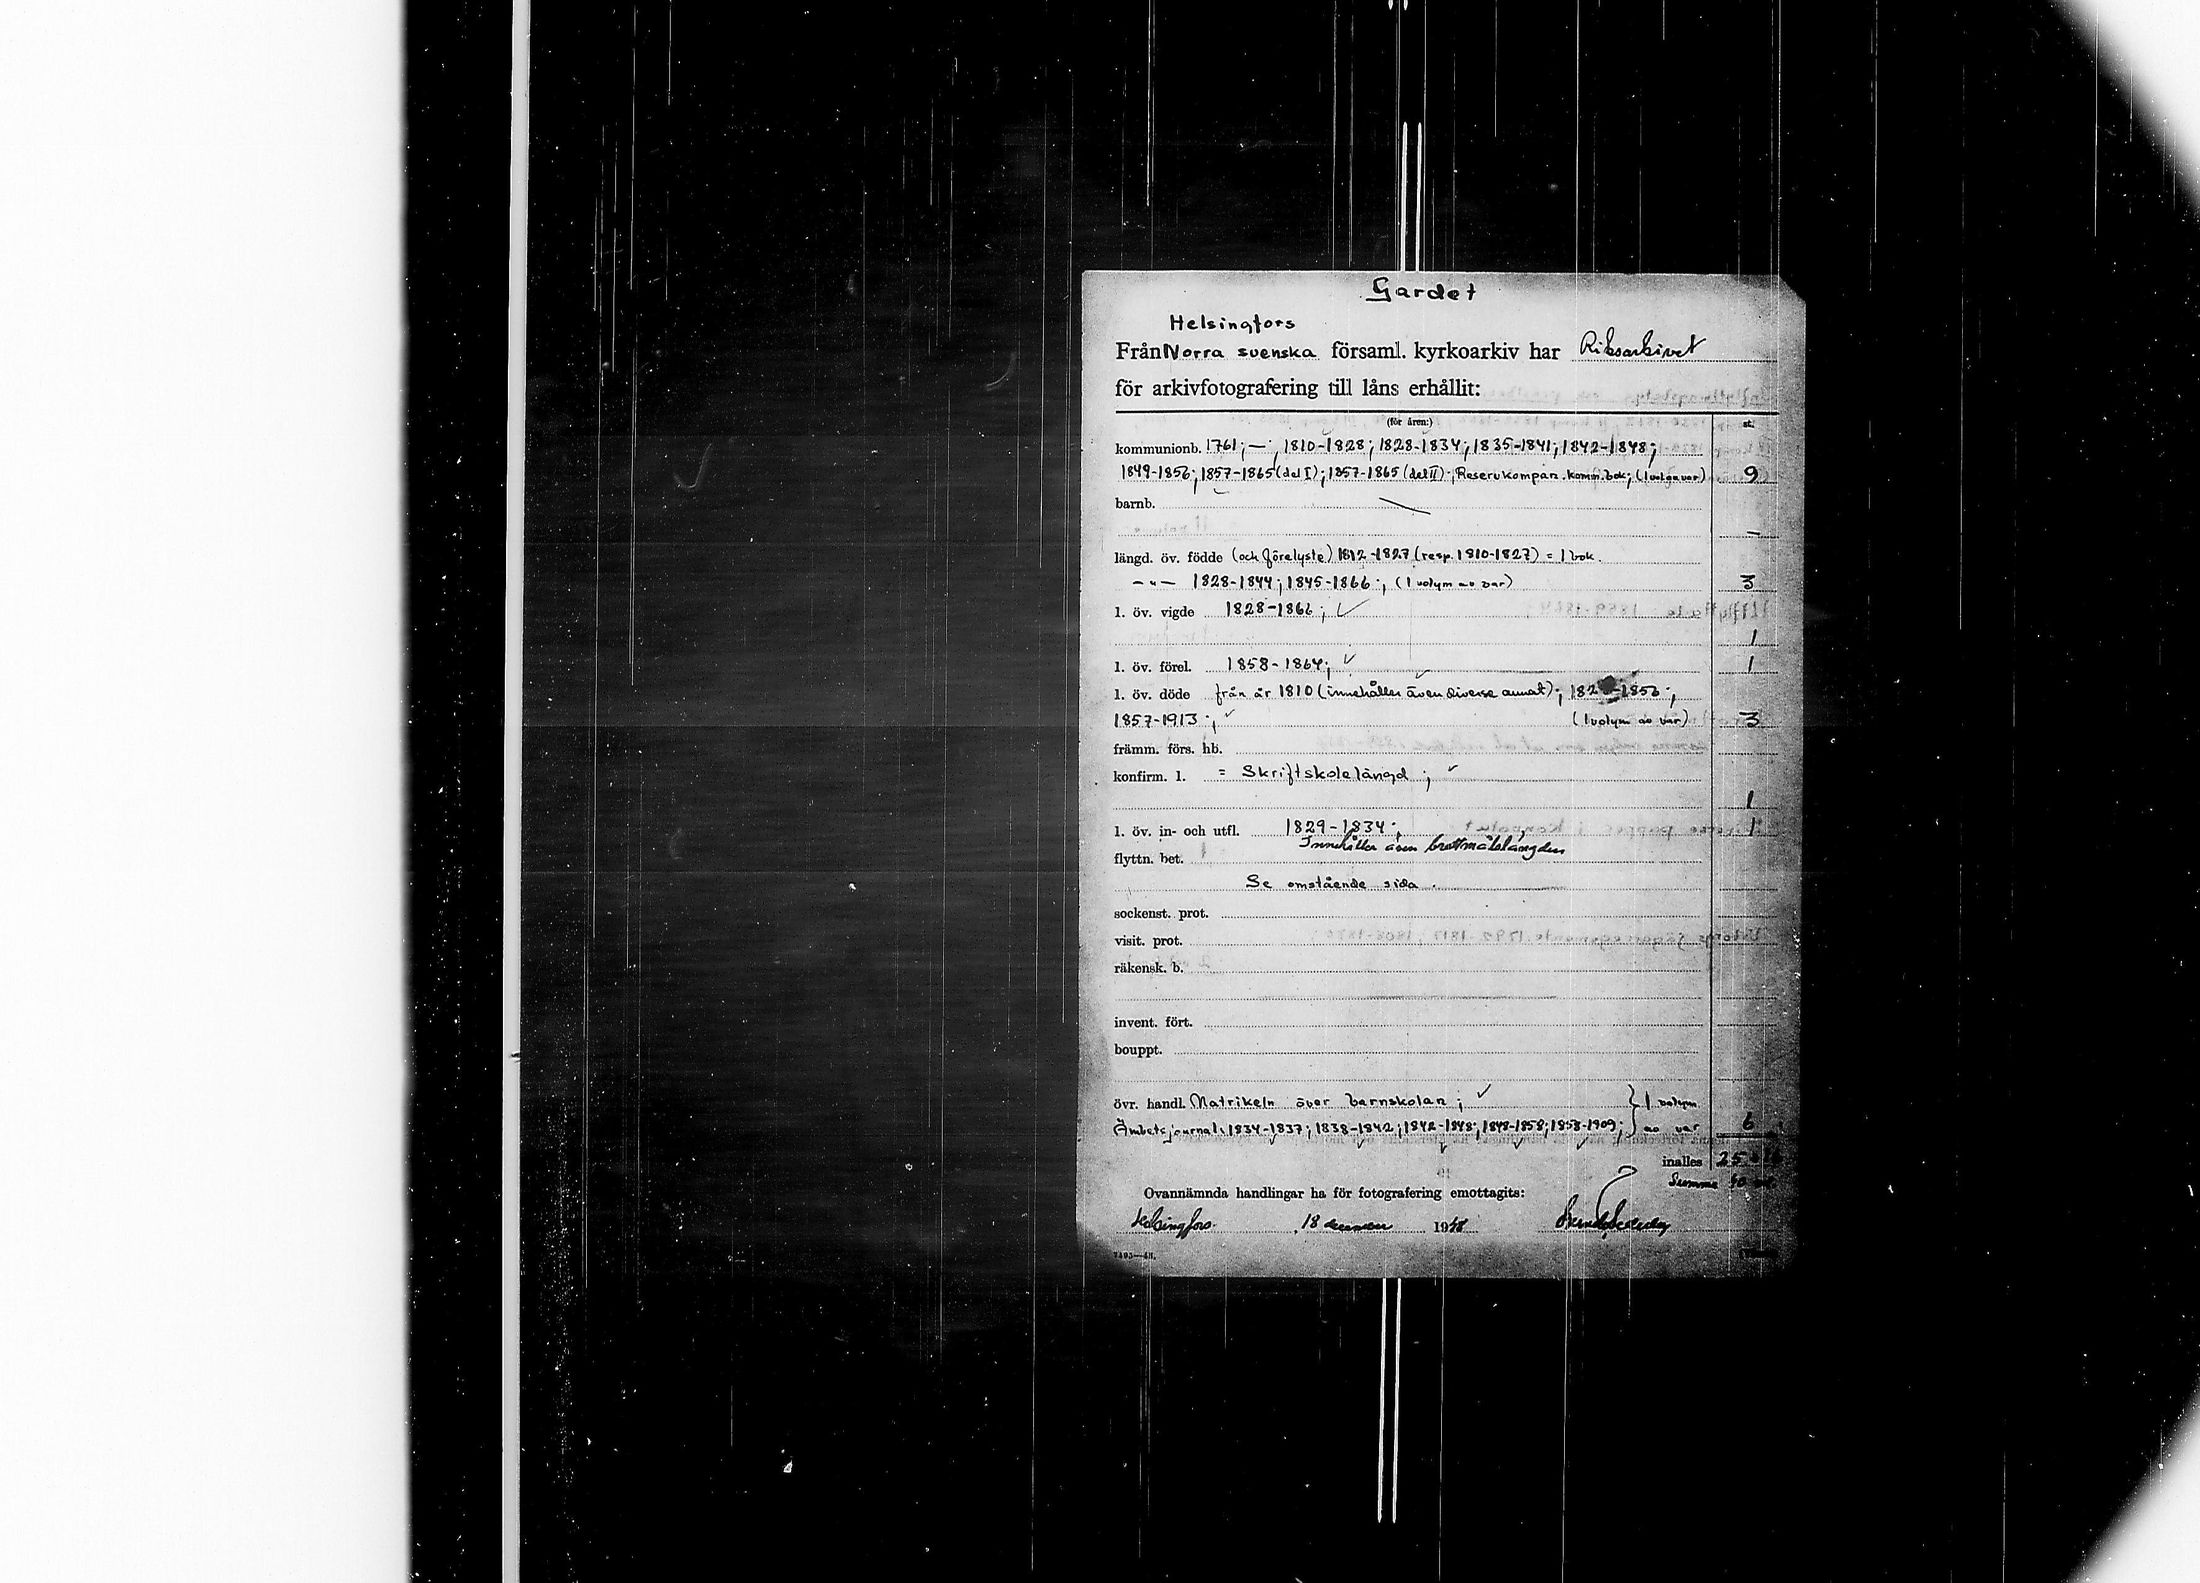 Gardet
Helsingfors
Från Norra svenska församl. kyrkoarkiv har Riksarkivet
för arkivfotografering till låns erhållit:
(för åren:) st.
kommunionb. 1761; —; 1810-1828; 1828-1834; 1835-1841; 1842-1848;
1849-1856; 1857-1865 (del I); 1857-1865 (del II); Reservkompan. komm.bok; (1 vol. av var) 9
barnb.
—
längd. öv. födde (och förelyste) 1812-1827 (resp. 1810-1827) = 1 bok.
-"- 1828-1844; 1845-1866; (1 volym av var) 3
l. öv. vigde 1828-1866;
1
l. öv. förel. 1858-1864; 1
l. öv. döde från år 1810 (innehåller även diverse annat);
1857-1913; (1 volym av var) 3
främm. förs. hb.
konfirm. l. = Skriftskolelängd;
1
l. öv. in- och utfl. 1829-1834; 1
Innehåller även brottmålslängden
flyttn. bet.
Se omstående sida.
sockenst. prot.
visit. prot.
räkensk. b.
invent. fört.
bouppt.
övr. handl. Matrikeln över barnskolan; } 1 volym
Ämbetsjournal: 1834-1837; 1838-1842; 1842-1848; 1848-1858; 1858-1909; } av var 6
inalles 25
Summa
Ovannämnda handlingar ha för fotografering emottagits:
Helsingfors 18 1948
7495—48.